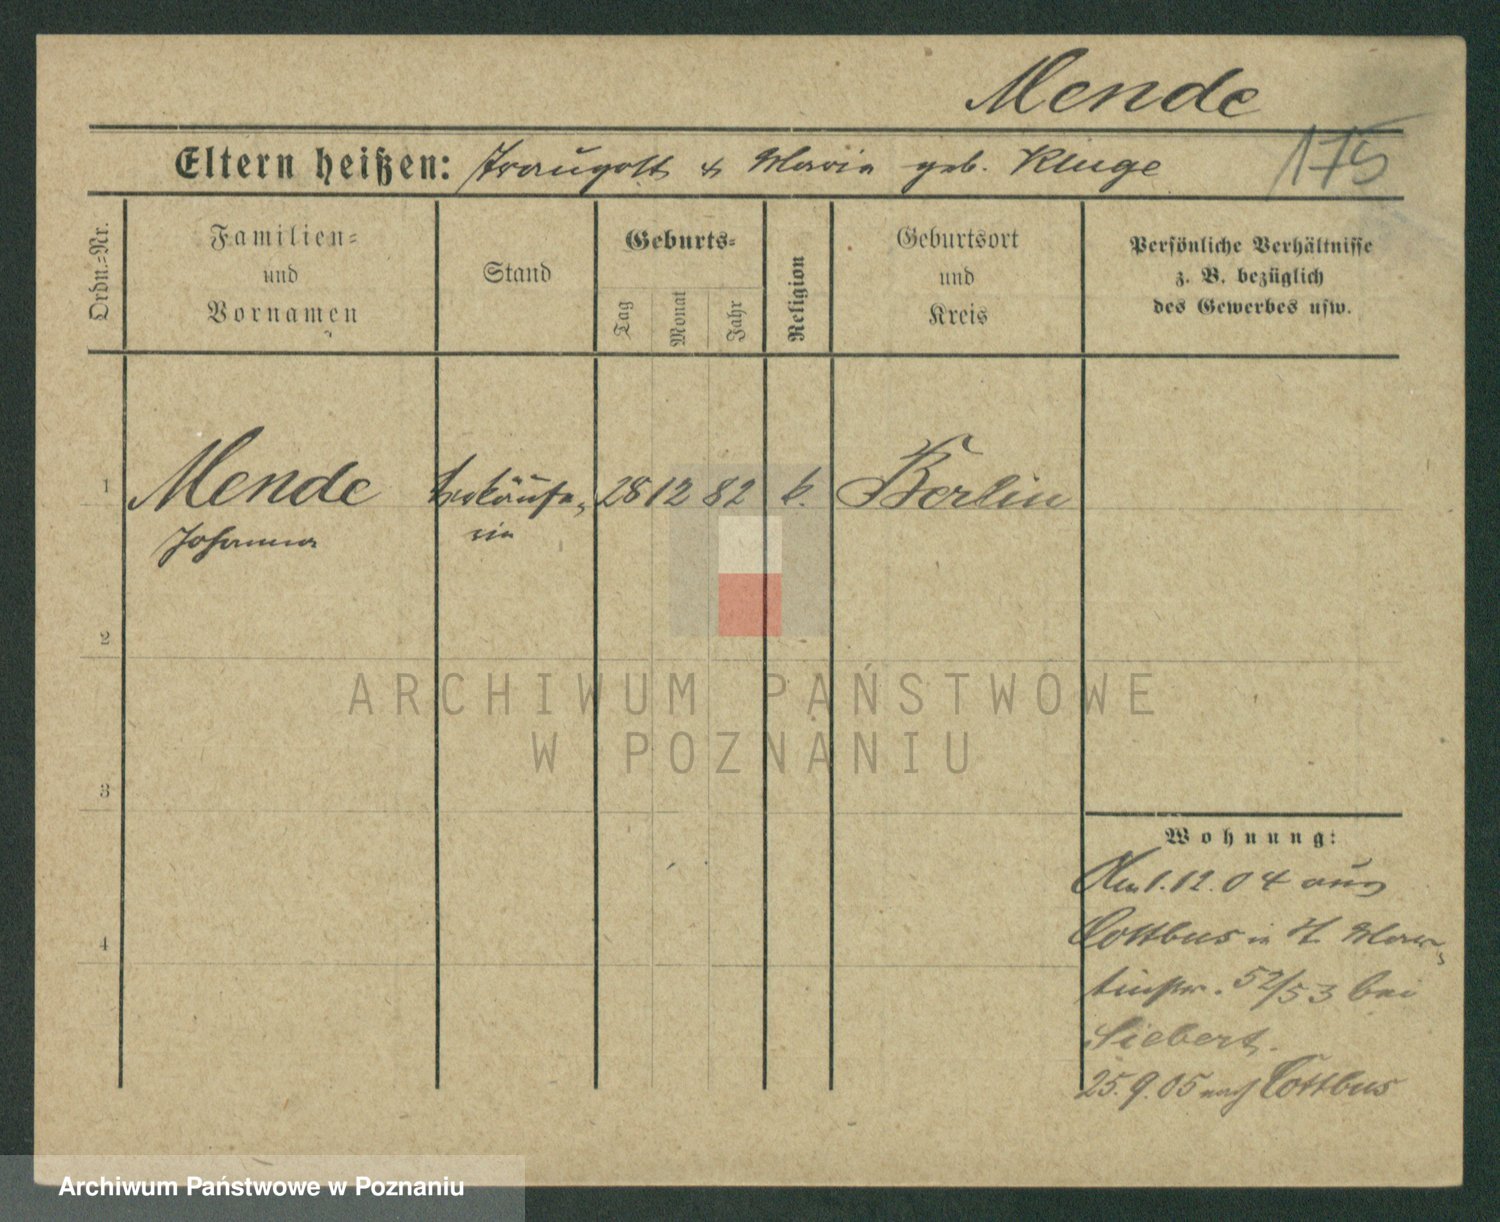 Mende
Eltern heißen: Traugott & Maria geb. Kluge
175
Ordn.=Nr.
Familien=
und
Vornamen
Stand
Geburts=
Tag
Monat
Jahr
Religion
Geburtsort
und
Kreis
Persönliche Verhältnisse
z. B. bezüglich
des Gewerbes usw.
1
Mende Verkäufe- 28 12 82 k. Berlin
Johanna rin
2
3
4
Wohnung:
Am 1.12.04 aus
Cottbus in H. Mar-
tinstr. 52/53 bei
Siebert.
25.9.05 nach Cottbus
ARCHIWUM PAŃSTWOWE
W POZNANIU
Archiwum Państwowe w Poznaniu